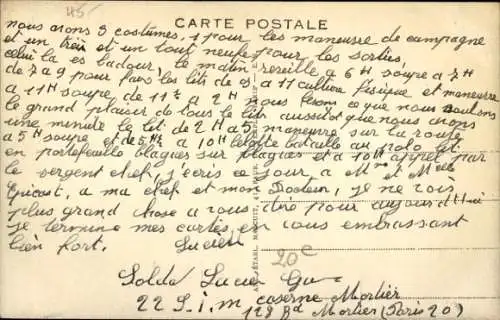 45-
CARTE POSTALE
nous avons 3 costumes, 1 pour les maneuvre de campagne
et un bien et un tout neufe pour les sorties,
celui la es badour, le matin reveille a 6H soupe a 7H
de 7 a 9 pour faire les lits de 9 a 11 culture fisique et maneuvre
a 11H soupe de 11½ a 2H nous ferons ce que nous voulons
le grand plaisir de tous le lits aussitot que nous avons
une minute le lit de 2H a 5H maneuvre sur la route
a 5H soupe et de 5H½ a 10H bataille au lit
en portefeuille blagues sur blagues et a 10H appel par
le sergent chef, j'ecris ce jour a Mme et Melle
a ma chef et mon, je ne vois
plus grand chose a vous dire pour aujourd'hui
je termine mes cartes en vous embrassant
bien fort. Lucien
20c
Soldat Lucien
22 S.i.m caserne Mortier
128 Bd Mortier (Paris 20)